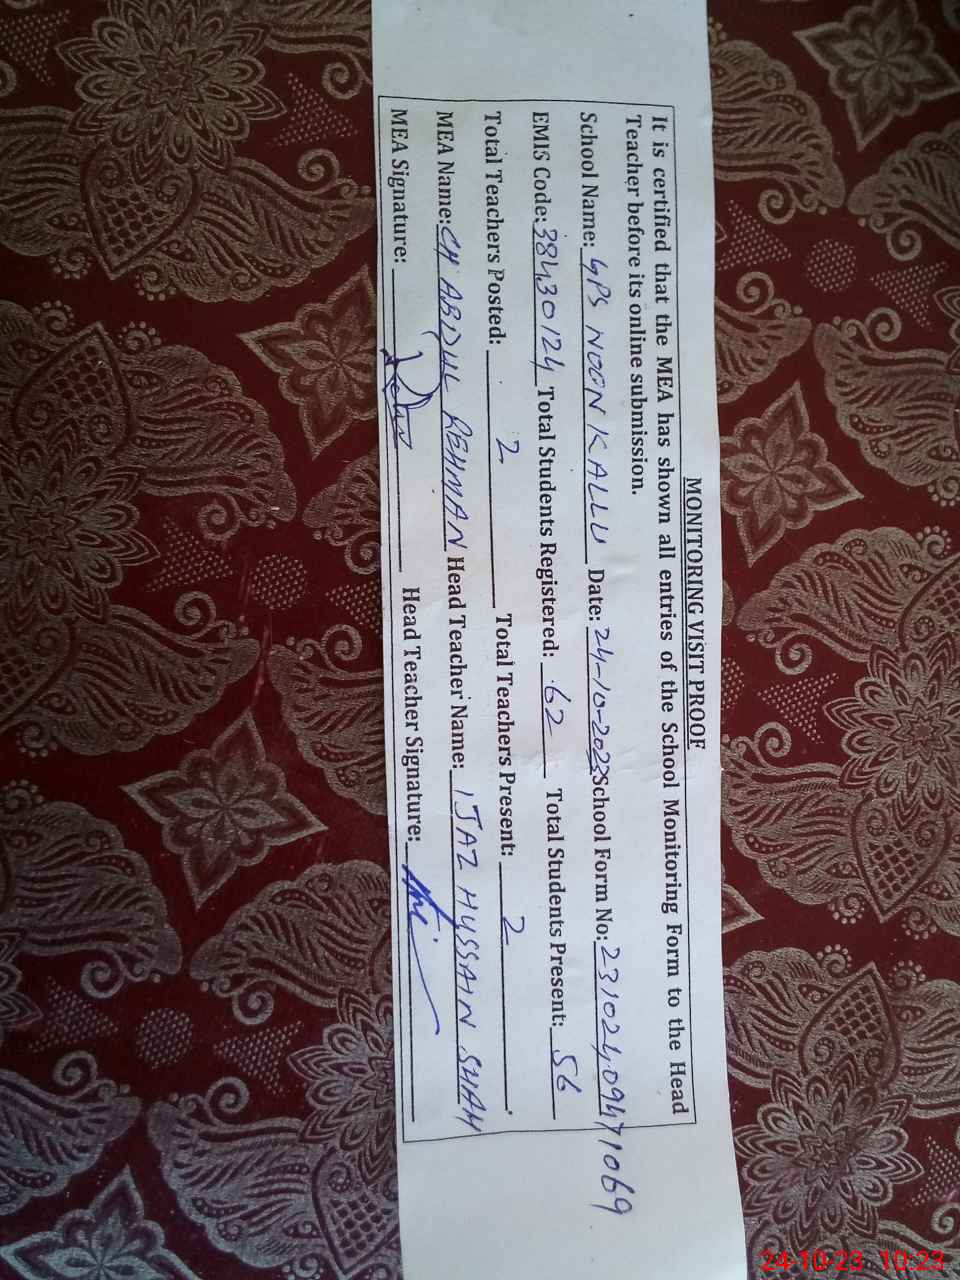 MONITORING VISIT PROOF
It is certified that the MEA has shown all entries of the School Monitoring Form to the Head
Teacher before its online submission.
School Name: GPS NOON KALLU Date: 24-10-2023 School Form No: 23102409471069
EMIS Code: 38430124 Total Students Registered: 62 Total Students Present: 56
Total Teachers Posted: 2 Total Teachers Present: 2
MEA Name: CH ABDUL REHMAN Head Teacher Name: IJAZ HUSSAIN SHAH
MEA Signature: Head Teacher Signature:
24-10-23 10:23